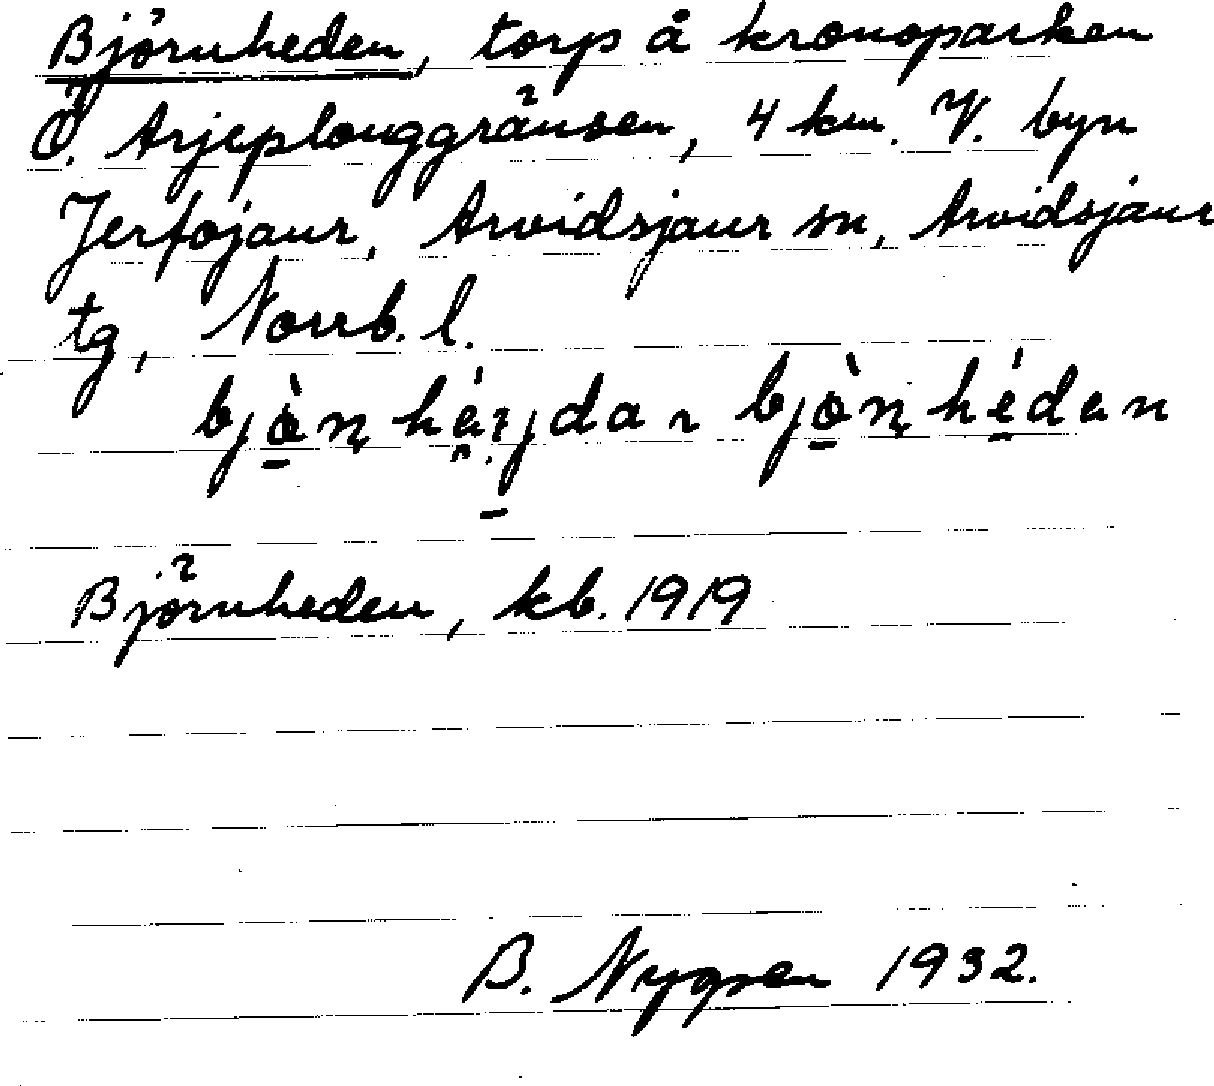 Björnheden, torp å kronoparken
Ö. Arjeplouggränsen, 4 km. V. byn
Jerfojaur, Arvidsjaur sn, Arvidsjaur
tg, Norrb. l.
Björnheden, kb. 1919
B. Nygren 1932.